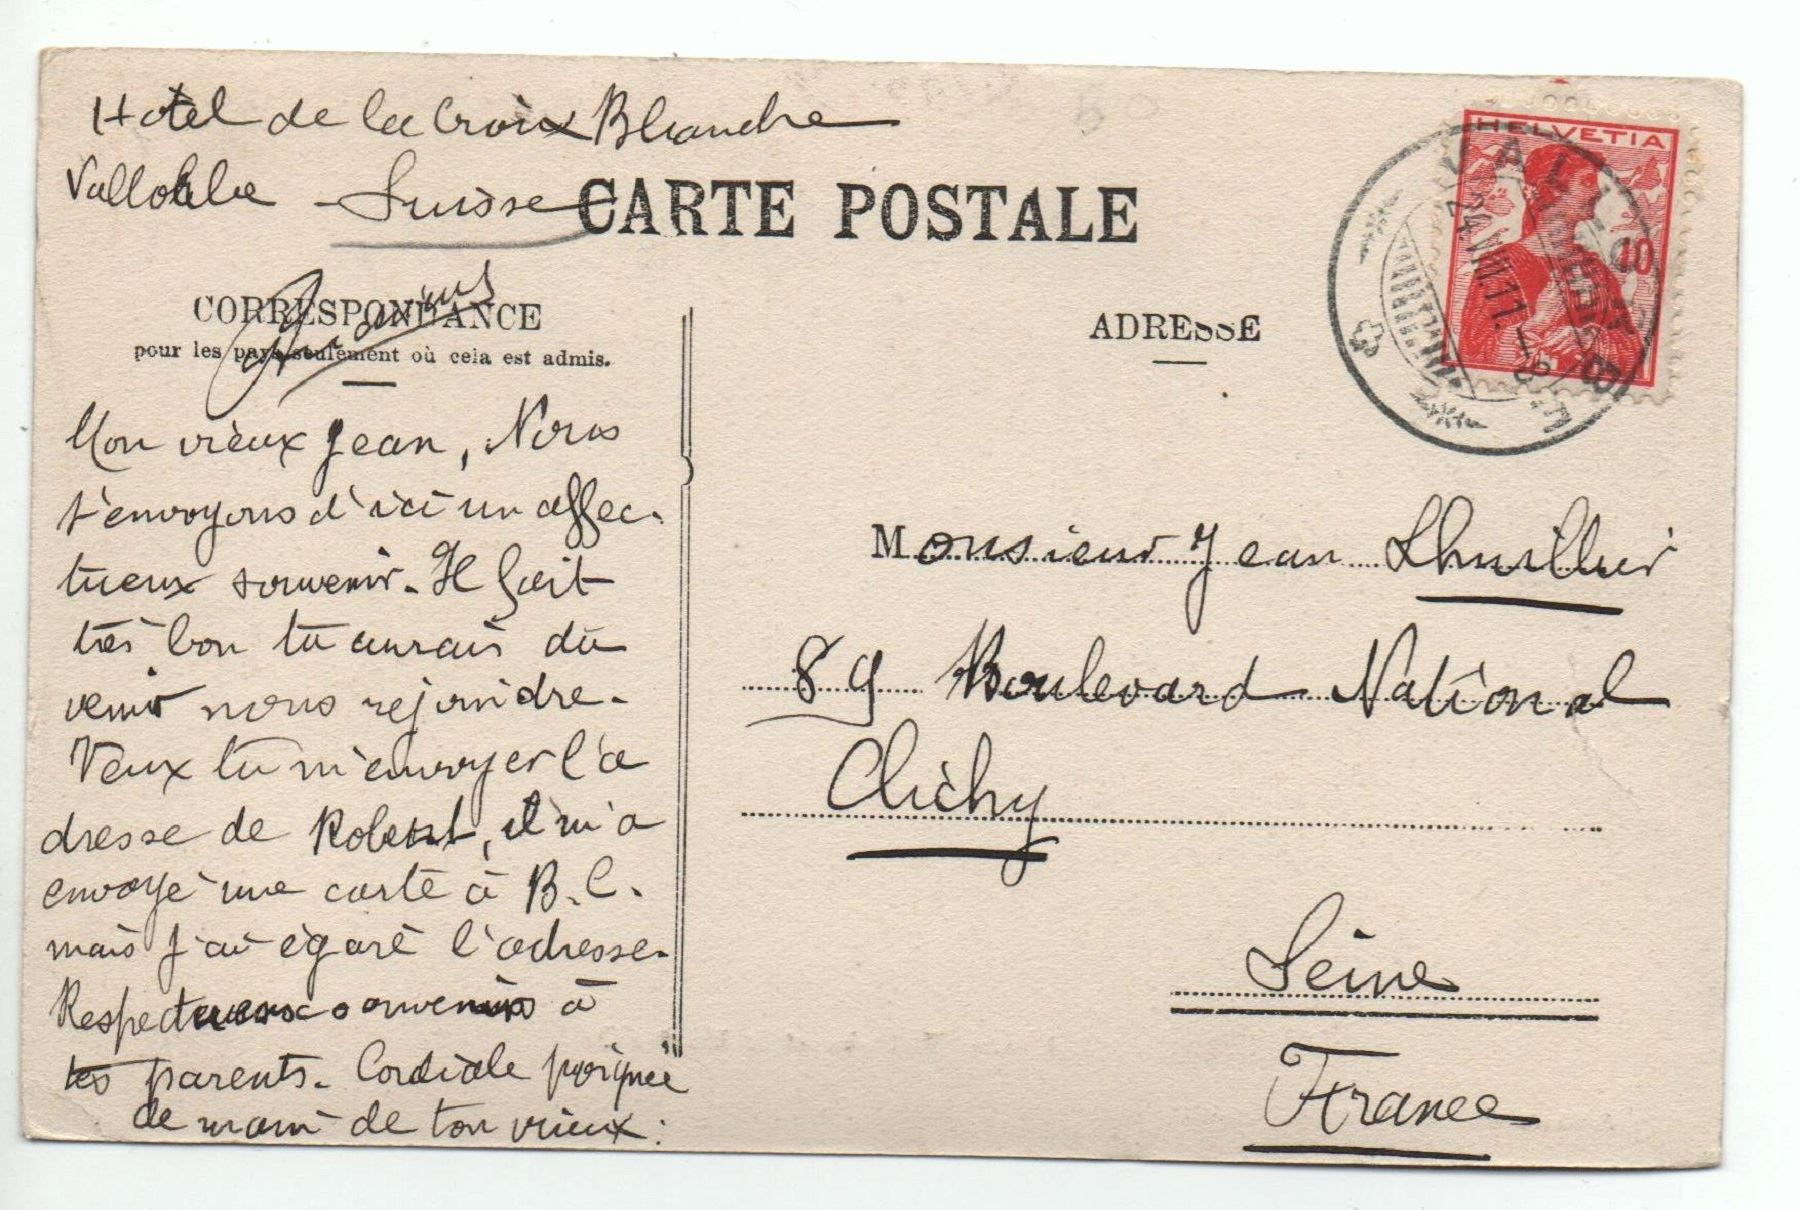 Hôtel de la Croix Blanche
Vallorbe - Suisse
CARTE POSTALE
CORRESPONDANCE
pour les pays seulement où cela est admis.
Mon vieux Jean, Nous
t'envoyons d'ici un affec-
tueux souvenir. Il fait
très bon tu aurais dû
venir nous rejoindre.
Veux tu m'envoyer l'a
dresse de Robert, il m'a
envoyé une carte à B.C.
mais j'ai égaré l'adresse.
Respectueux souvenirs à
tes parents. Cordiale poignée
de main de ton vieux:
ADRESSE
HELVETIA
10
VALLORBE
24.VIII.11.-8
Monsieur Jean Lhuillier
89 Boulevard National
Clichy
Seine
France